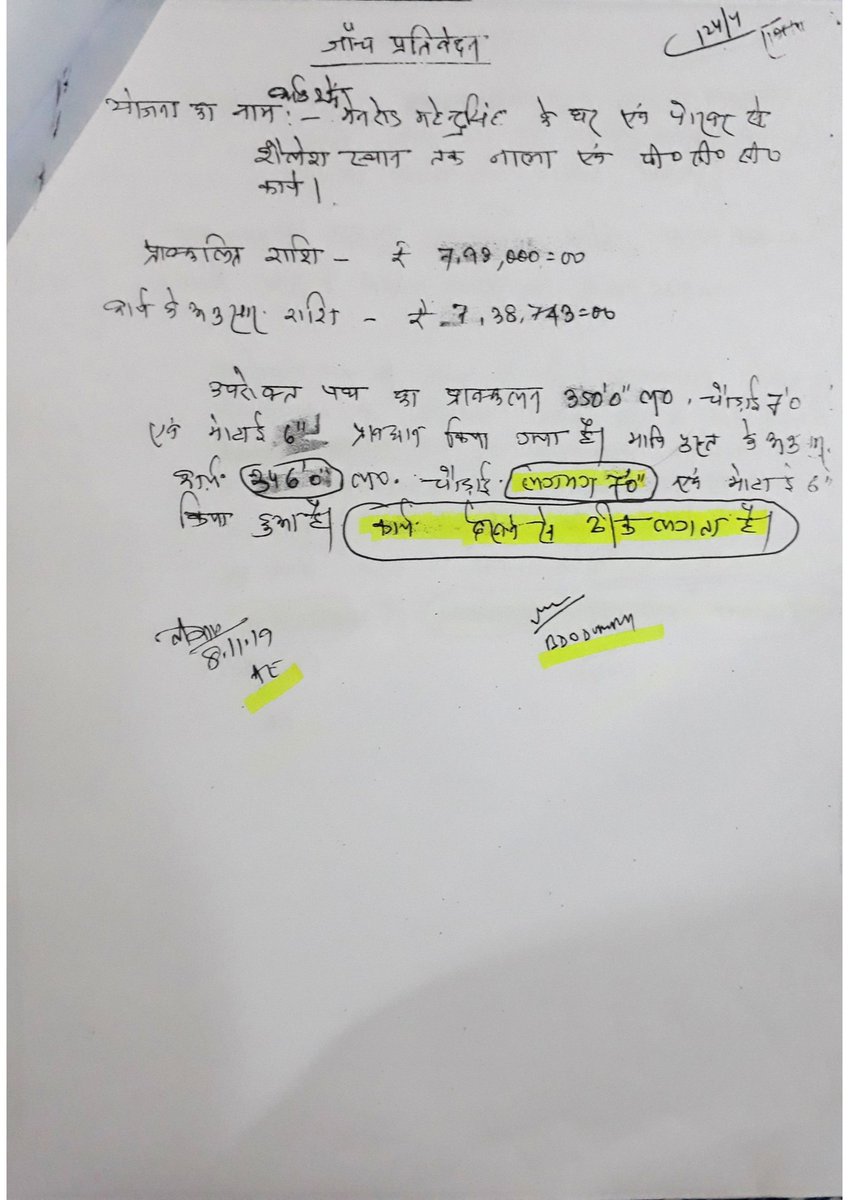 जाँच प्रतिवेदन
124/4
योजना का नाम :- मेनरोड महेन्द्र सिंह के घर एवं पोखर से
शैलेश स्थान तक नाला एवं पी० सी० सी०
कार्य।
प्राक्कलित राशि - ₹ 7,99,000=00
कार्य के अनुसार राशि - ₹ 7,38,743=00
उपरोक्त पथ का प्राक्कलन 350'0" ल०, चौड़ाई 7'0
एवं मोटाई 6" प्रावधान किया गया है। मापि पुस्त के अनुसार
कार्य 346'0" ल०. चौड़ाई लगभग 7'0" एवं मोटाई 6"
किया हुआ है। कार्य देखने से ठीक लगता है।
8.11.19
AE
BDO